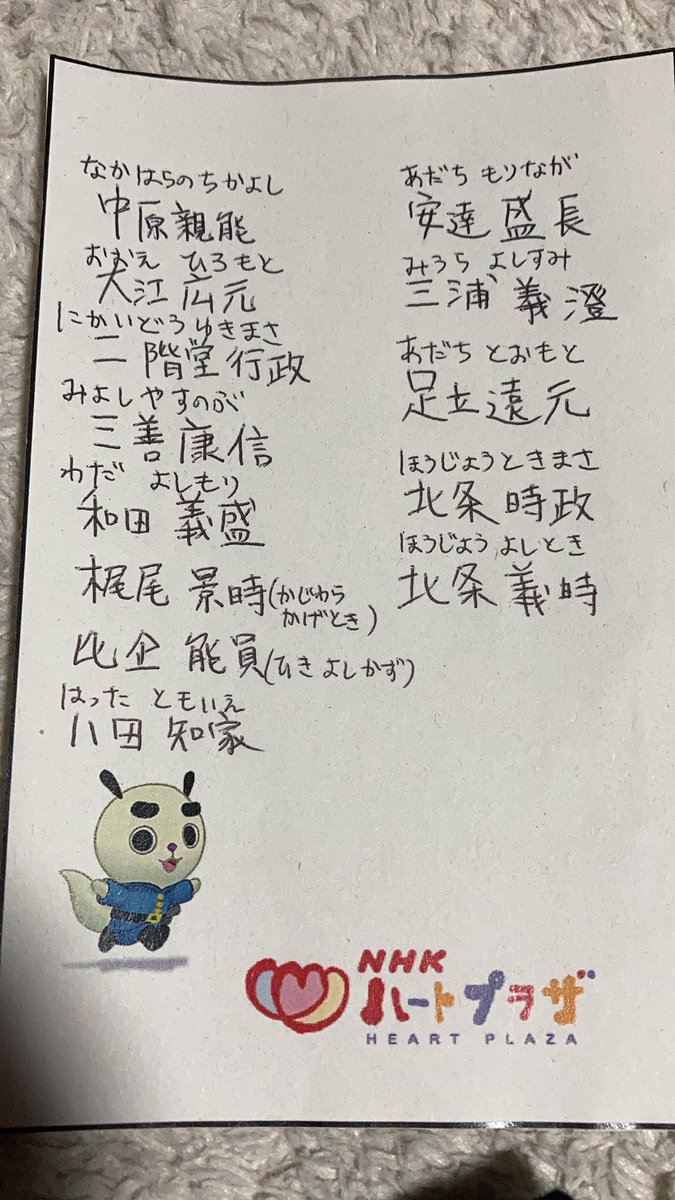 なかはらのちかよし
中原親能
おおえ ひろもと
大江広元
にかいどうゆきまさ
二階堂行政
みよしやすのぶ
三善康信
わだ よしもり
和田 義盛
梶尾 景時(かじわら
かげとき)
比企 能員(ひきよしかず)
はった ともいえ
八田 知家
あだち もりなが
安達 盛長
みうら よしすみ
三浦 義澄
あだち とおもと
足立遠元
ほうじょうときまさ
北条 時政
ほうじょう よしとき
北条 義時
NHK
ハートプラザ
HEART PLAZA